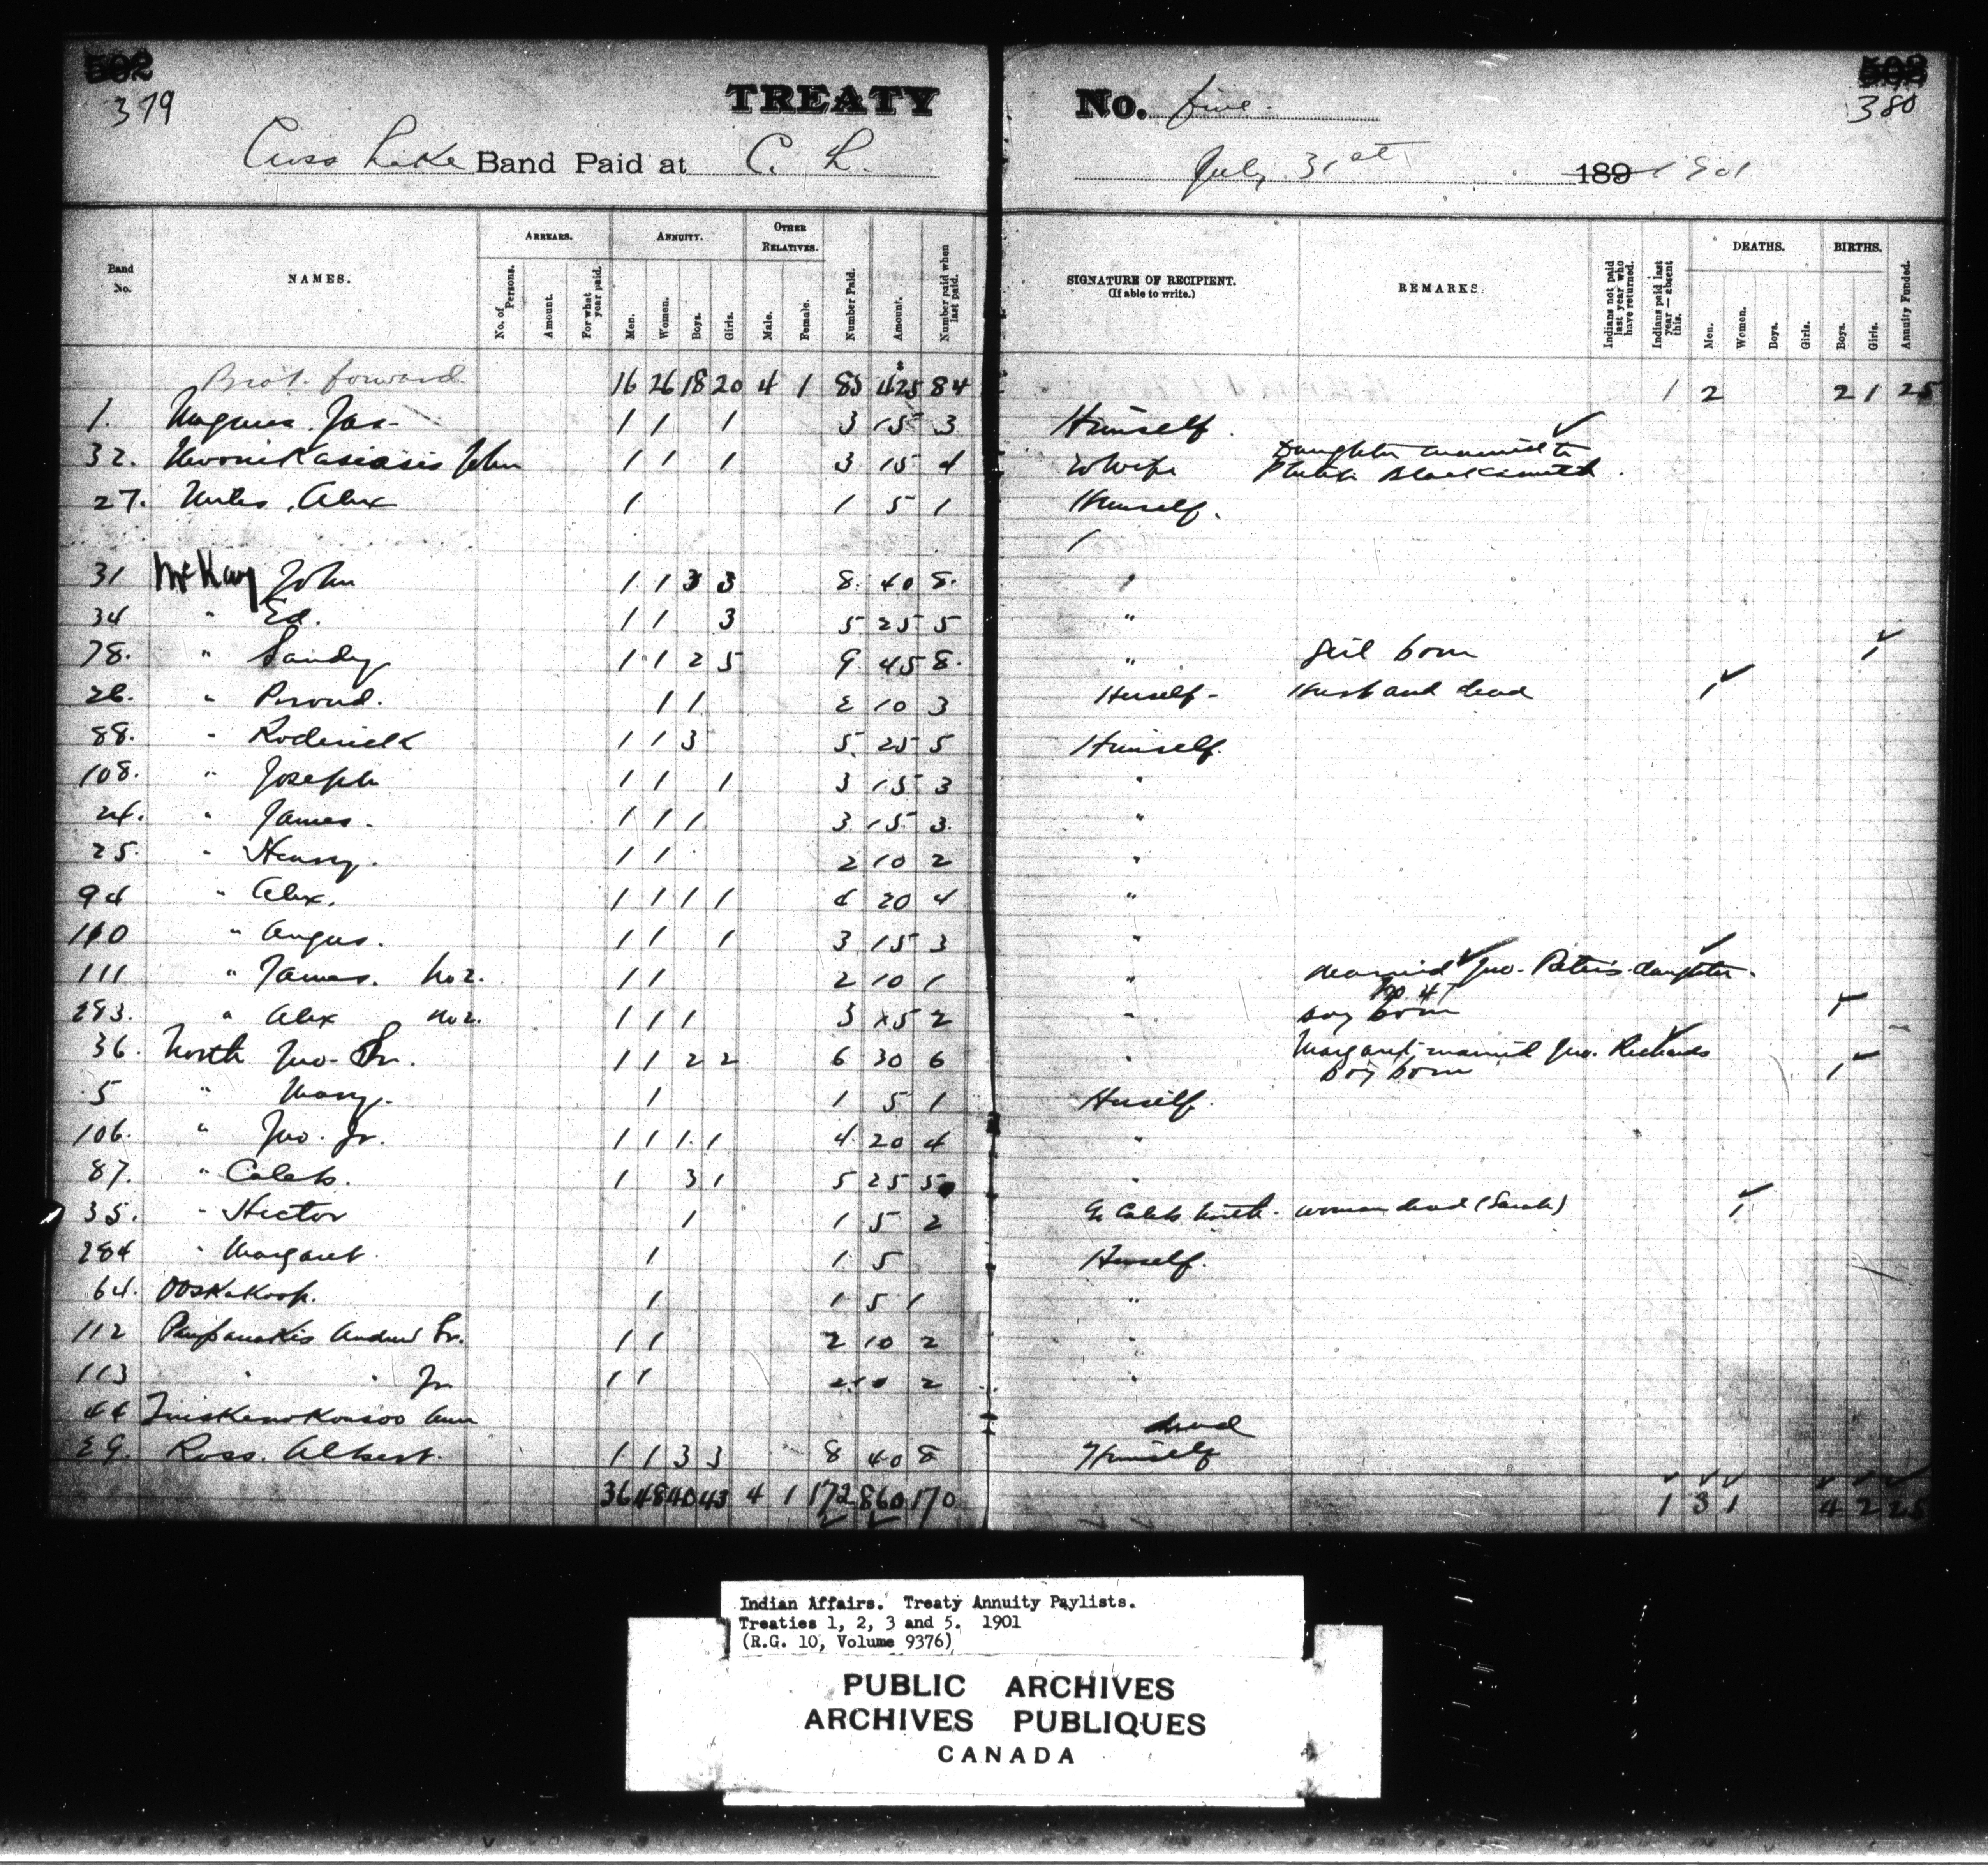 379
TREATY No. five.
380
Cross Lake Band Paid at C. L.
July 31st 189 1901
Band No.
NAMES.
ARREARS.
No. of Persons.
Amount.
For what year paid.
ANNUITY.
Men.
Women.
Boys.
Girls.
OTHER RELATIVES.
Male.
Female.
Number Paid.
Amount.
Number paid when last paid.
SIGNATURE OF RECIPIENT.
(If able to write.)
REMARKS.
Indians not paid last year who have returned.
Indians paid last year — absent this.
DEATHS.
Men.
Women.
Boys.
Girls.
BIRTHS.
Boys.
Girls.
Annuity Funded.
Brot. forward 16 26 18 20 4 1 85 $425 84 1 2 2 1 25
1. Jas. 1 1 1 3 15 3 Himself.
32. John 1 1 1 3 15 4 Wife Daughter married to Blacksmith
27. Alex 1 1 5 1 Himself.
31 McKay John 1 1 3 3 8. 40 8.
34 " Ed. 1 1 3 5 25 5 "
78. " Sandy 1 1 2 5 9 45 8. " Girl born 1
26. " Proud. 1 1 2 10 3 Herself - Husband dead 1
88. " Roderick 1 1 3 5 25 5 Himself.
108. " Joseph 1 1 1 3 15 3 "
24. " James. 1 1 1 3 15 3. "
25. " Henry. 1 1 2 10 2 "
94 " Alex. 1 1 1 1 4 20 4 "
110 " Angus. 1 1 1 3 15 3 "
111 " James. No 2. 1 1 2 10 1 " Married Jno. Peter's daughter.
No 47
293. " Alex No 2. 1 1 1 3 15 2 " Boy born 1
36. North Jno. Sr. 1 1 2 2 6 30 6 " Margaret married Jno. Richards
Boy born 1
5 " Mary. 1 1 5 1 Herself.
106. " Jno. Jr. 1 1 1 1 4 20 4 "
87. " Caleb. 1 3 1 5 25 5 "
35. " Hector 1 1 5 2 Caleb North. Woman dead (Sarah) 1
284 " Margaret 1 1 5 Herself.
64. Ooskakoop. 1 1 5 1 "
112 Paupanakis Andrew Sr. 1 1 2 10 2 "
113 " " Jr 1 1 2 10 2 "
44 Ann dead
29. Ross. Albert. 1 1 3 3 8 40 8 Himself
36 48 40 43 4 1 172 860 170 1 3 1 4 2 25
Indian Affairs. Treaty Annuity Paylists.
Treaties 1, 2, 3 and 5. 1901
(R.G. 10, Volume 9376)
PUBLIC ARCHIVES
ARCHIVES PUBLIQUES
CANADA